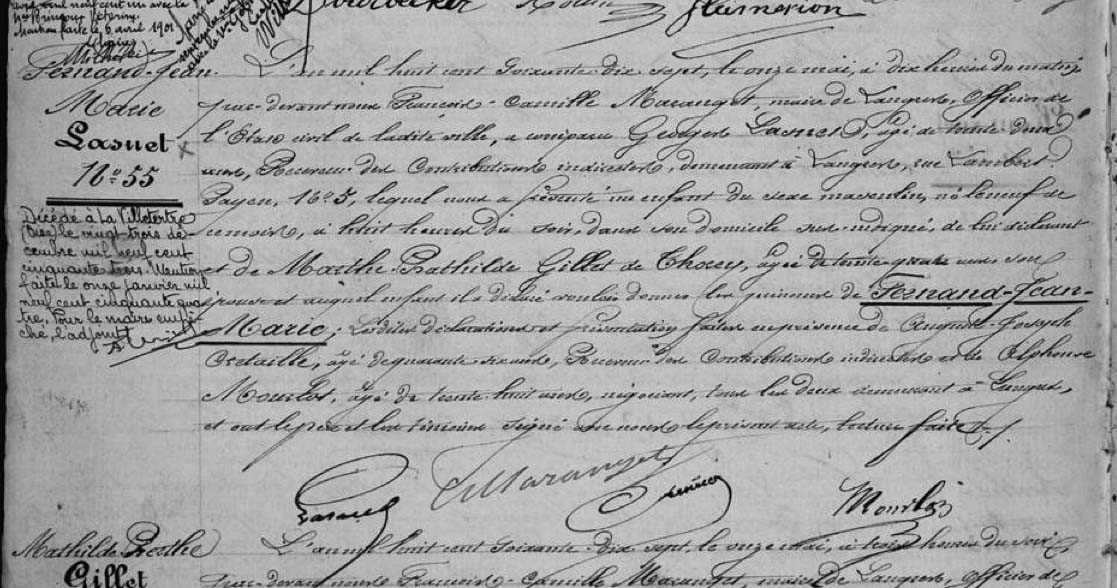 Nord, avril neuf cent un avec le
Mention faite le 6 avril 1901
Bourbecker
Mollin
Flammarion
Fernand-Jean.
Marie
Lasnet
Nº 55
L'an mil huit cent soixante-dix sept, le onze mai, à dix heures du matin,
par-devant nous François-Camille Maranget, maire de Langres, Officier de
l'Etat civil de ladite ville, a comparu Georges Lasnet, âgé de trente deux
ans, Receveur des Contributions indirectes, demeurant à Langres, rue Lambert-
Payen, Nº 3, lequel nous a présenté un enfant du sexe masculin, né le neuf de
ce mois, à huit heures du soir, dans son domicile sus-indiqué, de lui déclarant
et de Marthe-Bathilde Gillet de Thorey, âgée de trente-quatre ans son
épouse et auquel enfant il a déclaré vouloir donner les prénoms de Fernand-Jean-
Marie; lesdites déclarations et présentation faites en présence de Auguste-Joseph
Cretaille, âgé de quarante-six ans, Receveur des Contributions indirectes et de Alphonse
Mourlot, âgé de trente huit ans, négociant, tous les deux demeurant à Langres,
et ont le père et les témoins signé avec nous le présent acte, lecture faite./.
Décédé à La Villetertre
(Oise) le vingt trois dé-
cembre mil neuf cent
cinquante trois. Mention
faite le onze janvier mil
neuf cent cinquante qua-
tre. Pour le maire empê-
ché, l'adjoint
Lasnet
Maranget
Mourlot
Mathilde Berthe
Gillet
L'an mil huit cent soixante-dix sept, le onze mai, à trois heures du soir,
par-devant nous François-Camille Maranget, maire de Langres, Officier de